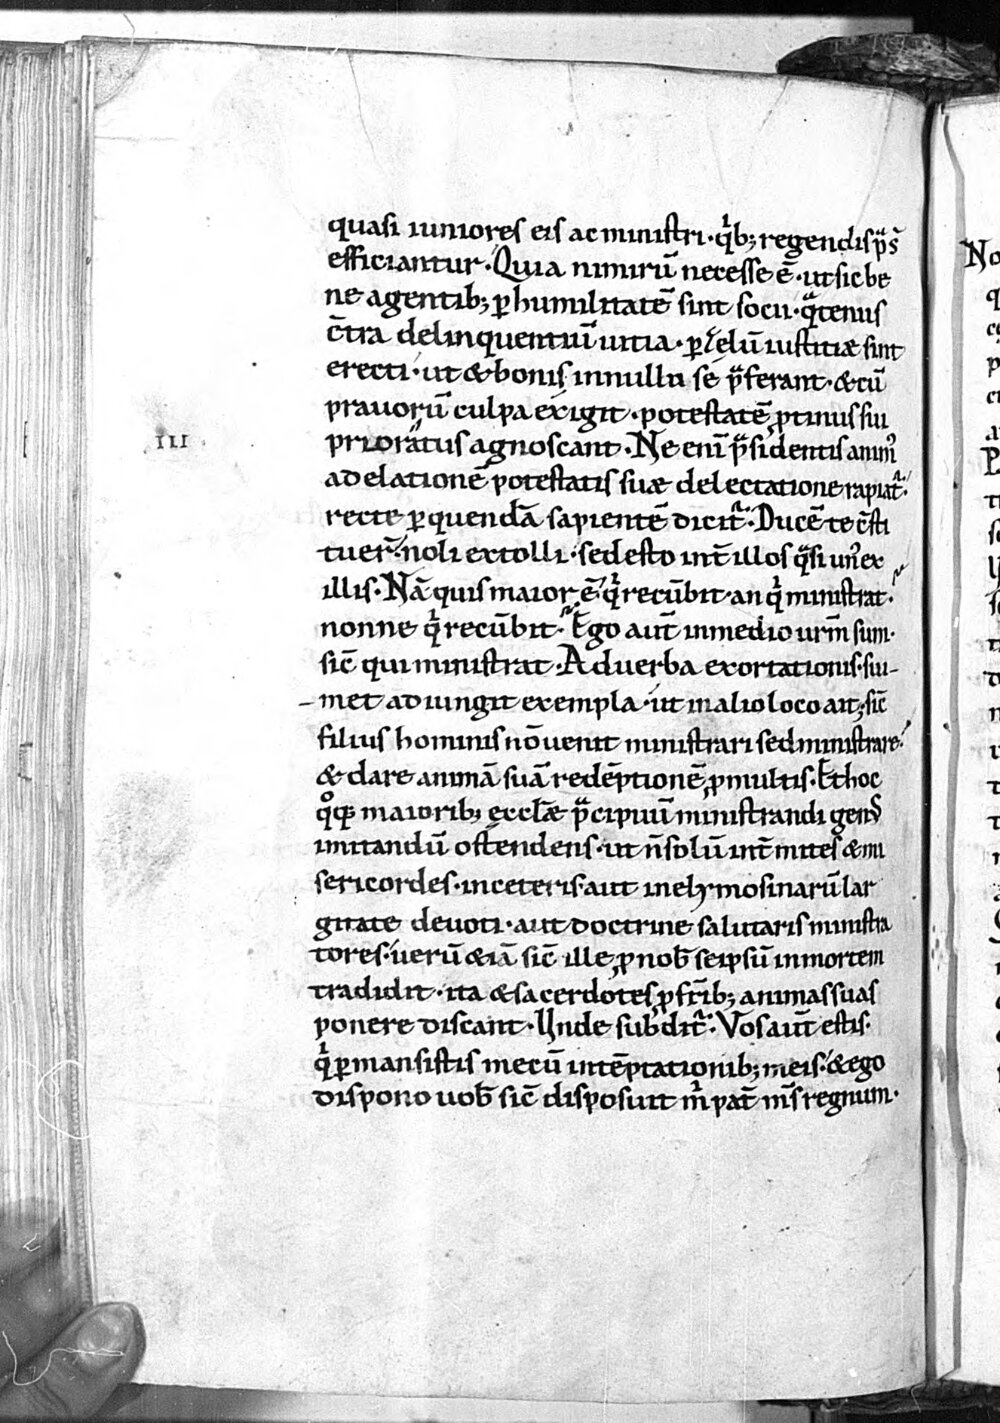 quasi iuniores eis ac ministri· qͥb; regendis p̄sͭ
efficiantur· Quia nimirū necesse ē· ut sic be
ne agentib; ꝑ humilitatē sint socii· qͣtenus
c̄tra delinquentiū uitia· ꝑ zelū iustitiæ sint
erecti· ut & bonis in nullo se p̄ferant· & cū
prauorū culpa exigit· potestatē ꝓtinus sui
prioratus agnoscant· Ne eni p̄sidentis animꝰ
ad elationē potestatis suæ delectatione rapiat᷑·
recte ꝑ quendā sapientē dicit᷑· Ducē te c̄sti
tuer᷑· noli extolli· sed esto int̄ illos qͣsi unꝰ ex
illis· Nā quis maior ē qͥ recūbit· an qͥ ministrat·
nonne qͥ recūbit· Ego aut̄ in medio ur̄m sum·
sic̄ qui ministrat· Ad uerba exortationis· sui-
-met adiungit exempla· ut in alio loco ait; sic̄
filius hominis nō uenit ministrari sed ministrare·
& dare animā suā redēptionē ꝓ multis· Et hoc
qͦq; maiorib; ęccl̄æ p̄cipuū ministrandi genꝰ
imitandū ostendens· ut n̄ solū int̄ mites & mi
sericordes· in ceteris· aut in elymosinarū lar
gitate deuoti· aut doctrine salutaris ministra
tores· uerū &iā sic̄ ille ꝓ nob̄ seipsū in mortem
tradidit· ita & sacerdotes ꝓ fr̄ib; animas suas
ponere discant· Unde subdit᷑· Vos aut̄ estis·
qͥ ꝑmansistis mecū in tēptationib; meis· & ego
dispono uob̄ sic̄ disposuit m̄ pat̄ m̄s regnum·
III